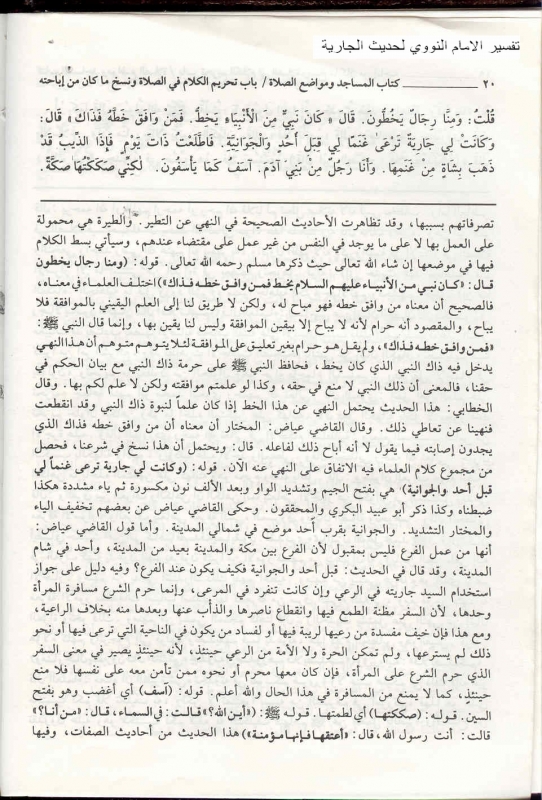 تفسير الامام النووي لحديث الجارية
٢٠ كتاب المساجد ومواضع الصلاة / باب تحريم الكلام في الصلاة ونسخ ما كان من إباحته
قُلْتُ: وَمِنَّا رِجَالٌ يَخُطُّونَ. قَالَ «كَانَ نَبِيٌّ مِنَ الْأَنْبِيَاءِ يَخُطُّ. فَمَنْ وَافَقَ خَطَّهُ فَذَاكَ» قَالَ:
وَكَانَتْ لِي جَارِيَةٌ تَرْعَىٰ غَنَمًا لِي قِبَلَ أُحُدٍ وَالْجَوَّانِيَّةِ. فَاطَّلَعْتُ ذَاتَ يَوْمٍ فَإِذَا الذِّيبُ قَدْ
ذَهَبَ بِشَاةٍ مِنْ غَنَمِهَا. وَأَنَا رَجُلٌ مِنْ بَنِي آدَمَ. آسَفُ كَمَا يَأْسَفُونَ. لٰكِنِّي صَكَكْتُهَا صَكَّةً.
تصرفاتهم بسببها، وقد تظاهرت الأحاديث الصحيحة في النهي عن التطير. والطيرة هي محمولة
على العمل بها لا على ما يوجد في النفس من غير عمل على مقتضاه عندهم، وسيأتي بسط الكلام
فيها في موضعها إن شاء الله تعالى حيث ذكرها مسلم رحمه الله تعالى. قوله: (ومنا رجال يخطون
قال: «كان نبي من الأنبياء عليهم السلام يخط فمن وافق خطه فذاك») اختلف العلماء في معناه،
فالصحيح أن معناه من وافق خطه فهو مباح له، ولكن لا طريق لنا إلى العلم اليقيني بالموافقة فلا
يباح، والمقصود أنه حرام لأنه لا يباح إلا بيقين الموافقة وليس لنا يقين بها، وإنما قال النبي ﷺ:
«فمن وافق خطه فذاك»، ولم يقل هو حرام بغير تعليق على الموافقة لئلا يتوهم متوهم أن هذا النهي
يدخل فيه ذاك النبي الذي كان يخط، فحافظ النبي ﷺ على حرمة ذاك النبي مع بيان الحكم في
حقنا، فالمعنى أن ذلك النبي لا منع في حقه، وكذا لو علمتم موافقته ولكن لا علم لكم بها. وقال
الخطابي: هذا الحديث يحتمل النهي عن هذا الخط إذا كان علماً لنبوة ذاك النبي وقد انقطعت
فنهينا عن تعاطي ذلك. وقال القاضي عياض: المختار أن معناه أن من وافق خطه فذاك الذي
يجدون إصابته فيما يقول لا أنه أباح ذلك لفاعله. قال: ويحتمل أن هذا نسخ في شرعنا، فحصل
من مجموع كلام العلماء فيه الاتفاق على النهي عنه الآن. قوله: (وكانت لي جارية ترعى غنماً لي
قبل أحد والجوانية) هي بفتح الجيم وتشديد الواو وبعد الألف نون مكسورة ثم ياء مشددة هكذا
ضبطناه وكذا ذكر أبو عبيد البكري والمحققون. وحكى القاضي عياض عن بعضهم تخفيف الياء
والمختار التشديد. والجوانية بقرب أُحد موضع في شمالي المدينة. وأما قول القاضي عياض:
أنها من عمل الفرع فليس بمقبول لأن الفرع بين مكة والمدينة بعيد من المدينة، وأحد في شام
المدينة، وقد قال في الحديث: قبل أحد والجوانية فكيف يكون عند الفرع؟ وفيه دليل على جواز
استخدام السيد جاريته في الرعي وإن كانت تنفرد في المرعى، وإنما حرم الشرع مسافرة المرأة
وحدها، لأن السفر مظنة الطمع فيها وانقطاع ناصرها والذاب عنها وبعدها منه بخلاف الراعية،
ومع هذا فإن خيف مفسدة من رعيها لريبة فيها أو لفساد من يكون في الناحية التي ترعى فيها أو نحو
ذلك لم يسترعها، ولم تمكن الحرة ولا الأمة من الرعي حينئذٍ، لأنه حينئذٍ يصير في معنى السفر
الذي حرم الشرع على المرأة، فإن كان معها محرم أو نحوه ممن تأمن معه على نفسها فلا منع
حينئذٍ، كما لا يمنع من المسافرة في هذا الحال والله أعلم. قوله: (آسف) أي أغضب وهو بفتح
السين. قوله: (صككتها) أي لطمتها. قوله ﷺ: («أين الله؟» قالت: في السماء، قال: «من أنا؟»
قالت: أنت رسول الله، قال: «أعتقها فإنها مؤمنة») هذا الحديث من أحاديث الصفات، وفيها